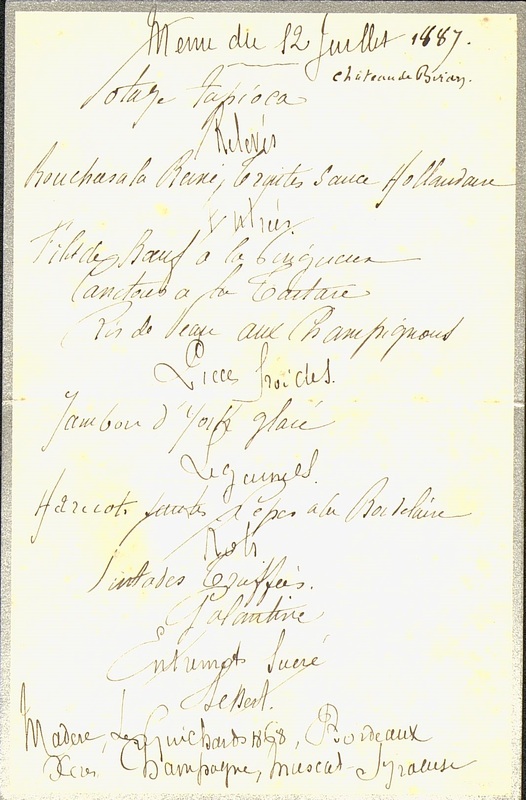 Menu du 12 Juillet 1887.
Château de Biran.
Potage Tapioca
Relevés
Bouchées à la Reine, Truites Sauce Hollandaise
Entrées.
Filet de Bœuf à la Périgueux
Canetons à la Tartare
Ris de Veau aux Champignons
Pièces froides.
Jambon d'York glacé
Légumes.
Haricots sautés Cèpes à la Bordelaise
Rots
Pintades Truffées.
Galantine
Entremets Sucré
Dessert.
Madère, Les Guichards 1868, Bordeaux
Xérès Champagne, Muscat - Syracuse